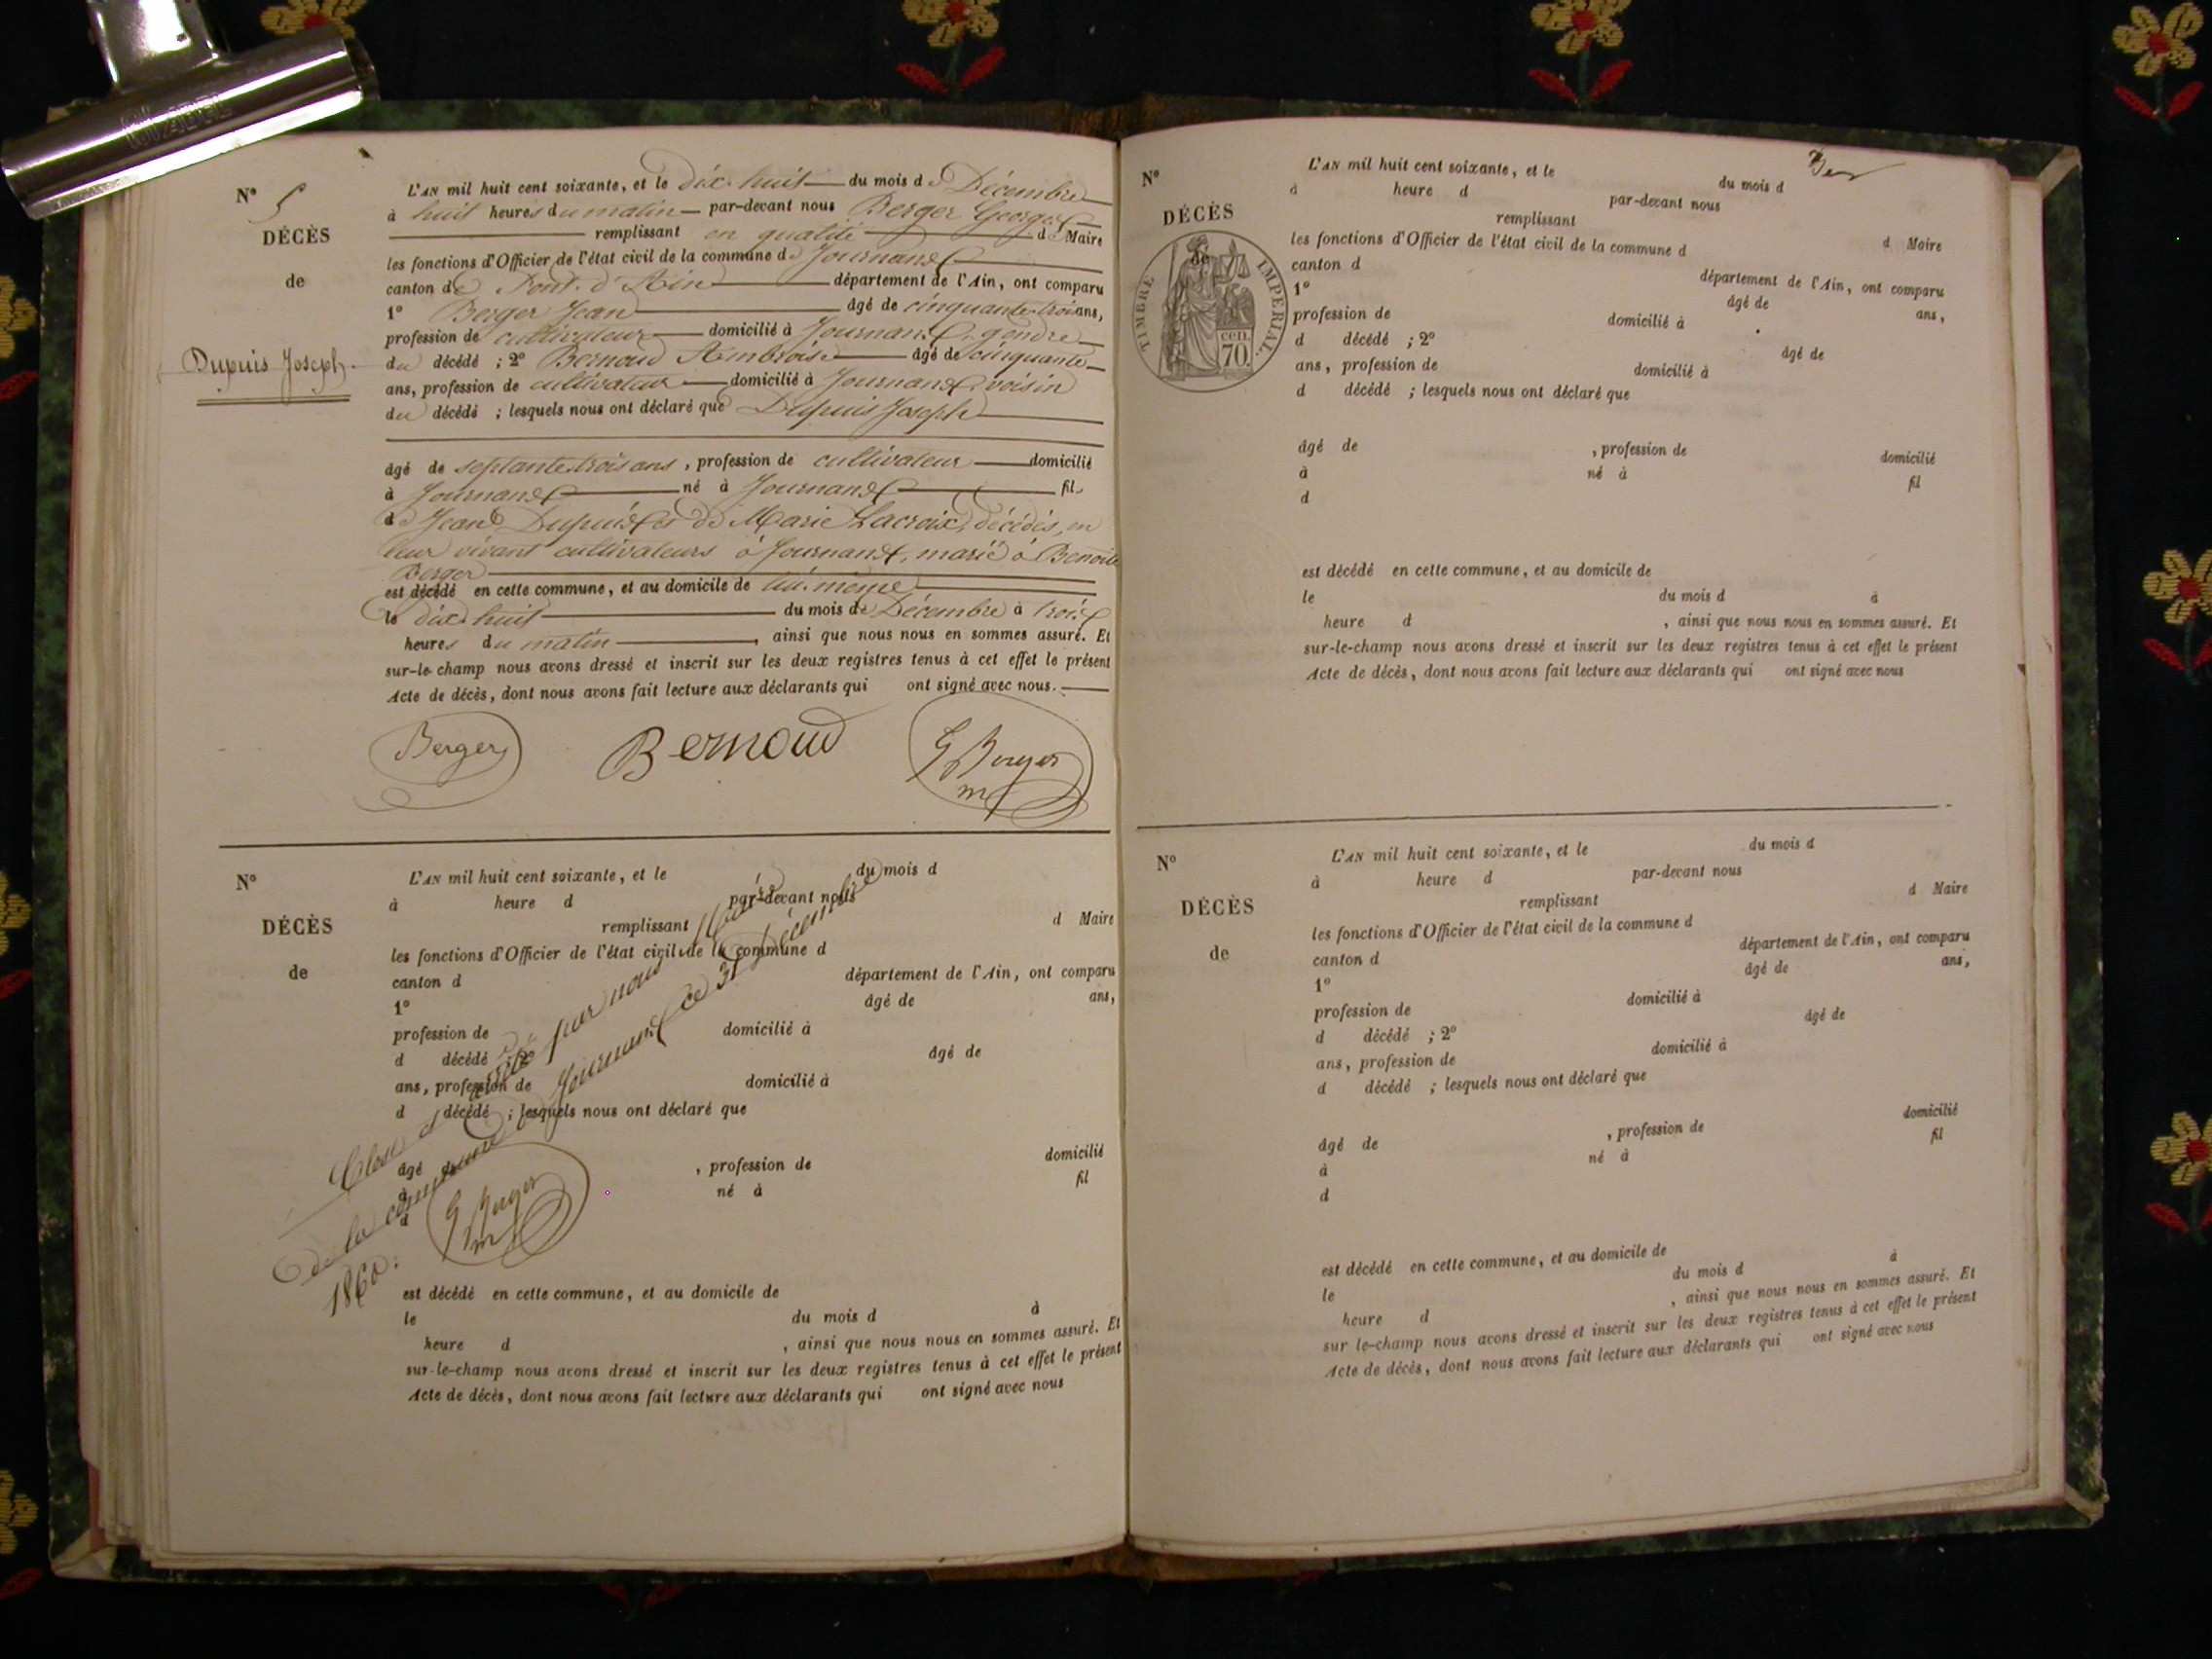 N° 5
DÉCÈS
de
Dupuis Joseph.
L'AN mil huit cent soixante, et le dix-huit du mois de Décembre
à huit heures du matin par-devant nous Berger George
remplissant en qualité de Maire
les fonctions d'Officier de l'état civil de la commune de Journans
canton de Pont-d'Ain département de l'Ain, ont comparu
1° Berger Jean âgé de cinquante-trois ans,
profession de cultivateur domicilié à Journans, gendre
du décédé ; 2° Bernoud Ambroise âgé de cinquante
ans, profession de cultivateur domicilié à Journans, voisin
du décédé ; lesquels nous ont déclaré que Dupuis Joseph
âgé de septante-trois ans, profession de cultivateur domicilié
à Journans né à Journans fils
de Jean Dupuis et de Marie Lacroix, décédés, en
leur vivant cultivateurs à Journans, marié à Benoite
Berger
est décédé en cette commune, et au domicile de lui-même
le dix-huit du mois de Décembre à trois
heures du matin, ainsi que nous nous en sommes assuré. Et
sur-le-champ nous avons dressé et inscrit sur les deux registres tenus à cet effet le présent
Acte de décès, dont nous avons fait lecture aux déclarants qui ont signé avec nous.
Berger Bernoud G Berger
m
N°
DÉCÈS
de
L'AN mil huit cent soixante, et le du mois d
à heure d par-devant nous
remplissant d Maire
les fonctions d'Officier de l'état civil de la commune d
canton d département de l'Ain, ont comparu
1° âgé de ans,
profession de domicilié à
d décédé ; 2° âgé de
ans, profession de domicilié à
d décédé ; lesquels nous ont déclaré que
âgé de , profession de domicilié
à né à fil
d
est décédé en cette commune, et au domicile de
le du mois d à
heure d , ainsi que nous nous en sommes assuré. Et
sur-le-champ nous avons dressé et inscrit sur les deux registres tenus à cet effet le présent
Acte de décès, dont nous avons fait lecture aux déclarants qui ont signé avec nous
Clos et par nous Maire
de la commune de Journans ce 31 Décembre
1860.
G Berger
m
N°
DÉCÈS
de
TIMBRE IMPERIAL.
cen.
70.
Ber
L'AN mil huit cent soixante, et le du mois d
à heure d par-devant nous
remplissant d Maire
les fonctions d'Officier de l'état civil de la commune d
canton d département de l'Ain, ont comparu
1° âgé de ans,
profession de domicilié à
d décédé ; 2° âgé de
ans, profession de domicilié à
d décédé ; lesquels nous ont déclaré que
âgé de , profession de domicilié
à né à fil
d
est décédé en cette commune, et au domicile de
le du mois d à
heure d , ainsi que nous nous en sommes assuré. Et
sur-le-champ nous avons dressé et inscrit sur les deux registres tenus à cet effet le présent
Acte de décès, dont nous avons fait lecture aux déclarants qui ont signé avec nous
N°
DÉCÈS
de
L'AN mil huit cent soixante, et le du mois d
à heure d par-devant nous
remplissant d Maire
les fonctions d'Officier de l'état civil de la commune d
canton d département de l'Ain, ont comparu
1° âgé de ans,
profession de domicilié à
d décédé ; 2° âgé de
ans, profession de domicilié à
d décédé ; lesquels nous ont déclaré que
âgé de , profession de domicilié
à né à fil
d
est décédé en cette commune, et au domicile de
le du mois d à
heure d , ainsi que nous nous en sommes assuré. Et
sur le-champ nous avons dressé et inscrit sur les deux registres tenus à cet effet le présent
Acte de décès, dont nous avons fait lecture aux déclarants qui ont signé avec nous